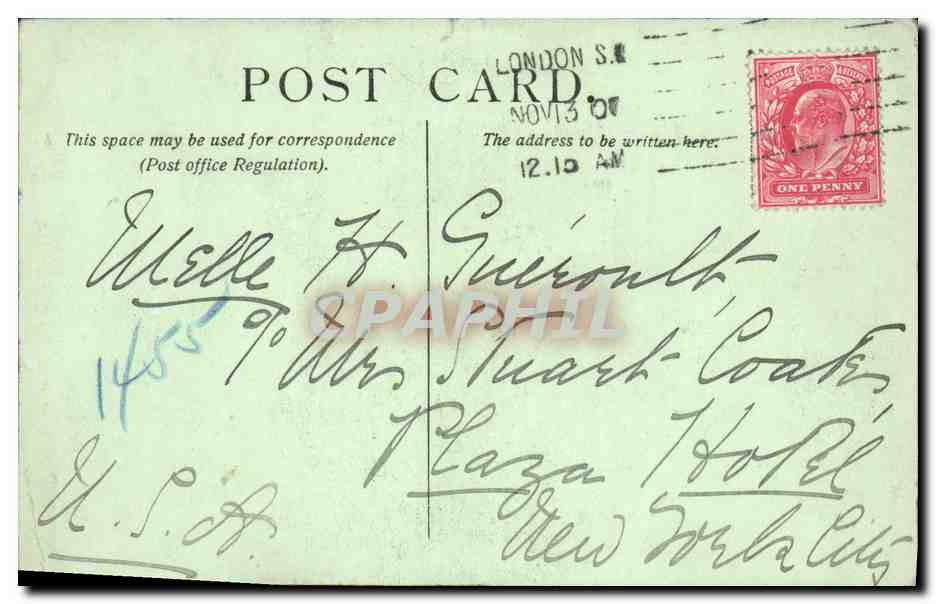 POST CARD.
LONDON S.E
NOV 13 07
12.15 AM
POSTAGE & REVENUE
ONE PENNY
This space may be used for correspondence
(Post office Regulation).
The address to be written here.
Melle H. Guéroult,
c/o Mrs Stuart Coats,
Plaza Hotel
New York City
U.S.A.
1455
CPAPHIL